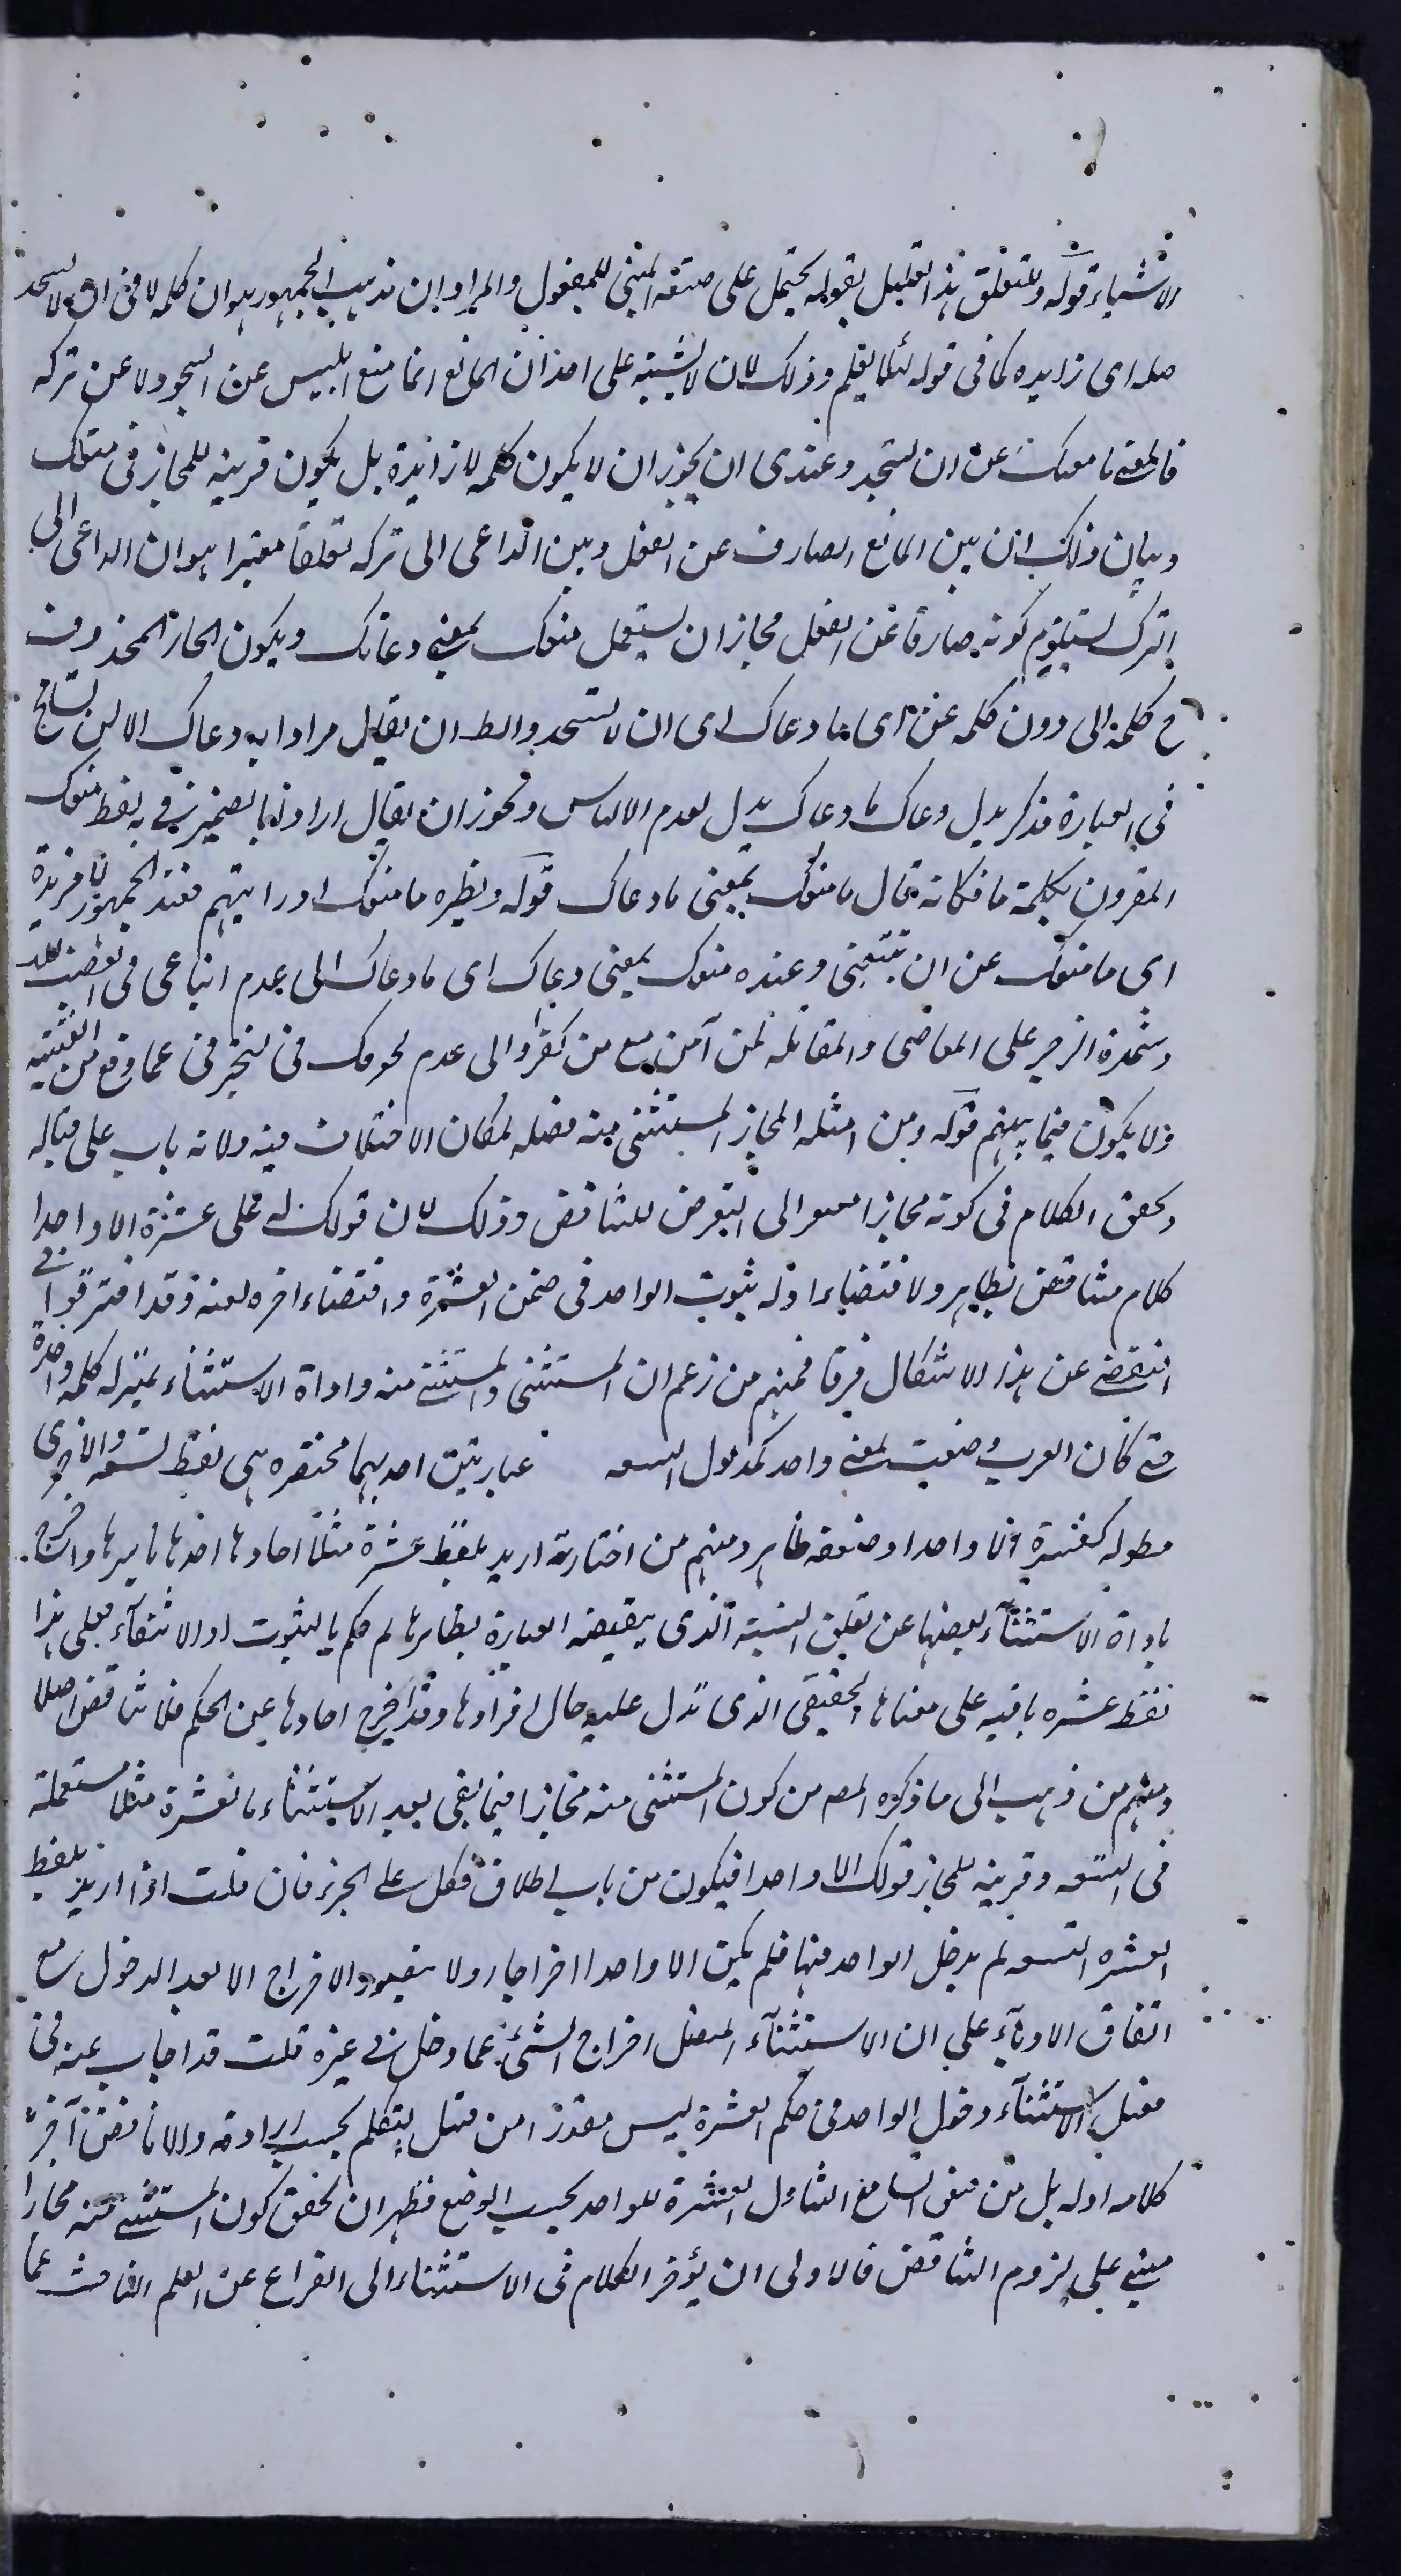 الاشياء قوله وللتعلق هذا التعليل بقوله يحتمل على صيغة المبنى للمفعول والمراد ان مذهب الجمهور هو ان كلمة لا فى ان لا تسجد
صلة اى زايدة كما فى قوله لئلا يعلم وذلك لان لا يشتبه على احد ان المانع انما منع ابليس عن السجود لا عن تركه
فالمعنى ما منعك عن ان تسجد وعندى ان يجوز ان لا يكون كلمة لا زائدة بل يكون قرينة للمجاز فى منعك
وبيان ذلك ان بين المانع الصارف عن الفعل وبين الداعى الى تركه تعلقا معتبرا هو ان الداعى الى
الترك يستلزم كونه صارفا عن الفعل فجاز ان يستعمل منعك بمعنى دعاك ويكون الجار المحذوف
ح كلمة الى دون كلمة عن اى ما دعاك الى ان لا تسجد والظ ان يقال مرادا به دعاك الا ان تسامح
فى العبارة فذكر بدل دعاك ما دعاك بدل لعدم الالتباس ويجوز ان يقال اراد بالضمير فى به لفظ منعك
المقرون بكلمة ما فكانه قال ما منعك بمعنى ما دعاك قوله ونظيره ما منعك اذ رايتهم فعند الجمهور لا مزيدة
اى ما منعك عن ان تتبعنى وعنده منعك بمعنى دعاك اى ما دعاك الى عدم اتباعى فى الغضب لله
وشدة الزجر على المعاصى والمقاتلة لمن آمن مع من كفر او الى عدم لحوقك فى لتخبرنى عما وقع من الفتنة
ولا يكون فيما بينهم قوله ومن امثلة المجاز المستثنى منه فصله لمكان الاختلاف فيه ولانه باب على حياله
وتحقق الكلام فى كونه مجازا الى التعرض للتناقض وذلك لان قولك له على عشرة الا واحدا
كلام متناقض بظاهره لاقتضاء اوله ثبوت الواحد فى ضمن العشرة واقتضاء اخره نفيه وقد افترقوا فى
التفصى عن هذا الاشكال فرقا فمنهم من زعم ان المستثنى والمستثنى منه واداة الاستثناء بمنزلة كلمة واحدة
حتى كان العرب وضعت لمعنى واحد كمدلول التسعة عبارتين احديهما مختصرة هى لفظ تسعة والاخرى
مطولة كعشرة الا واحدا وضعفه ظاهر ومنهم من اختار انه اريد بلفظ عشرة مثلا احادها باسرها واخرج
باداة الاستثناء بعضها عن تعلق النسبة الذى يقتضيه العبارة بظاهرها ثم حكم بالثبوت او الانتفاء فعلى هذا
لفظ عشره باقية على معناها الحقيقى الذى تدل عليه حال افرادها وقد اخرج احادها عن الحكم فلا تناقض اصلا
ومنهم من ذهب الى ما ذكره المصـ من كون المستثنى منه مجازا فيما بقى بعد الاستثناء فالعشرة مثلا مستعملة
فى التسعة وقرينة المجاز قولك الا واحدا فيكون من باب اطلاق الكل على الجزء فان قلت اذا اريد بلفظ
العشرة التسعة لم يدخل الواحد فيها فلم يكن الا واحدا اخراجا ولا يتصور الاخراج الا بعد الدخول مع
اتفاق الادباء على ان الاستثناء المتصل اخراج الشئ عما دخل فى غيره قلت قد اجاب عنه
قبل الاستثناء دخول الواحد فى حكم العشرة ليس مقدرا من قبل المتكلم بحسب ارادته والا ناقض آخر
كلامه اوله بل من قبل السامع لتناول العشرة للواحد بحسب الوضع فظهر ان تحقق كون المستثنى منه مجازا
مبنى على لزوم التناقض فالاولى ان يؤخر الكلام فى الاستثناء الى الفراغ عن العلم الباحث عما